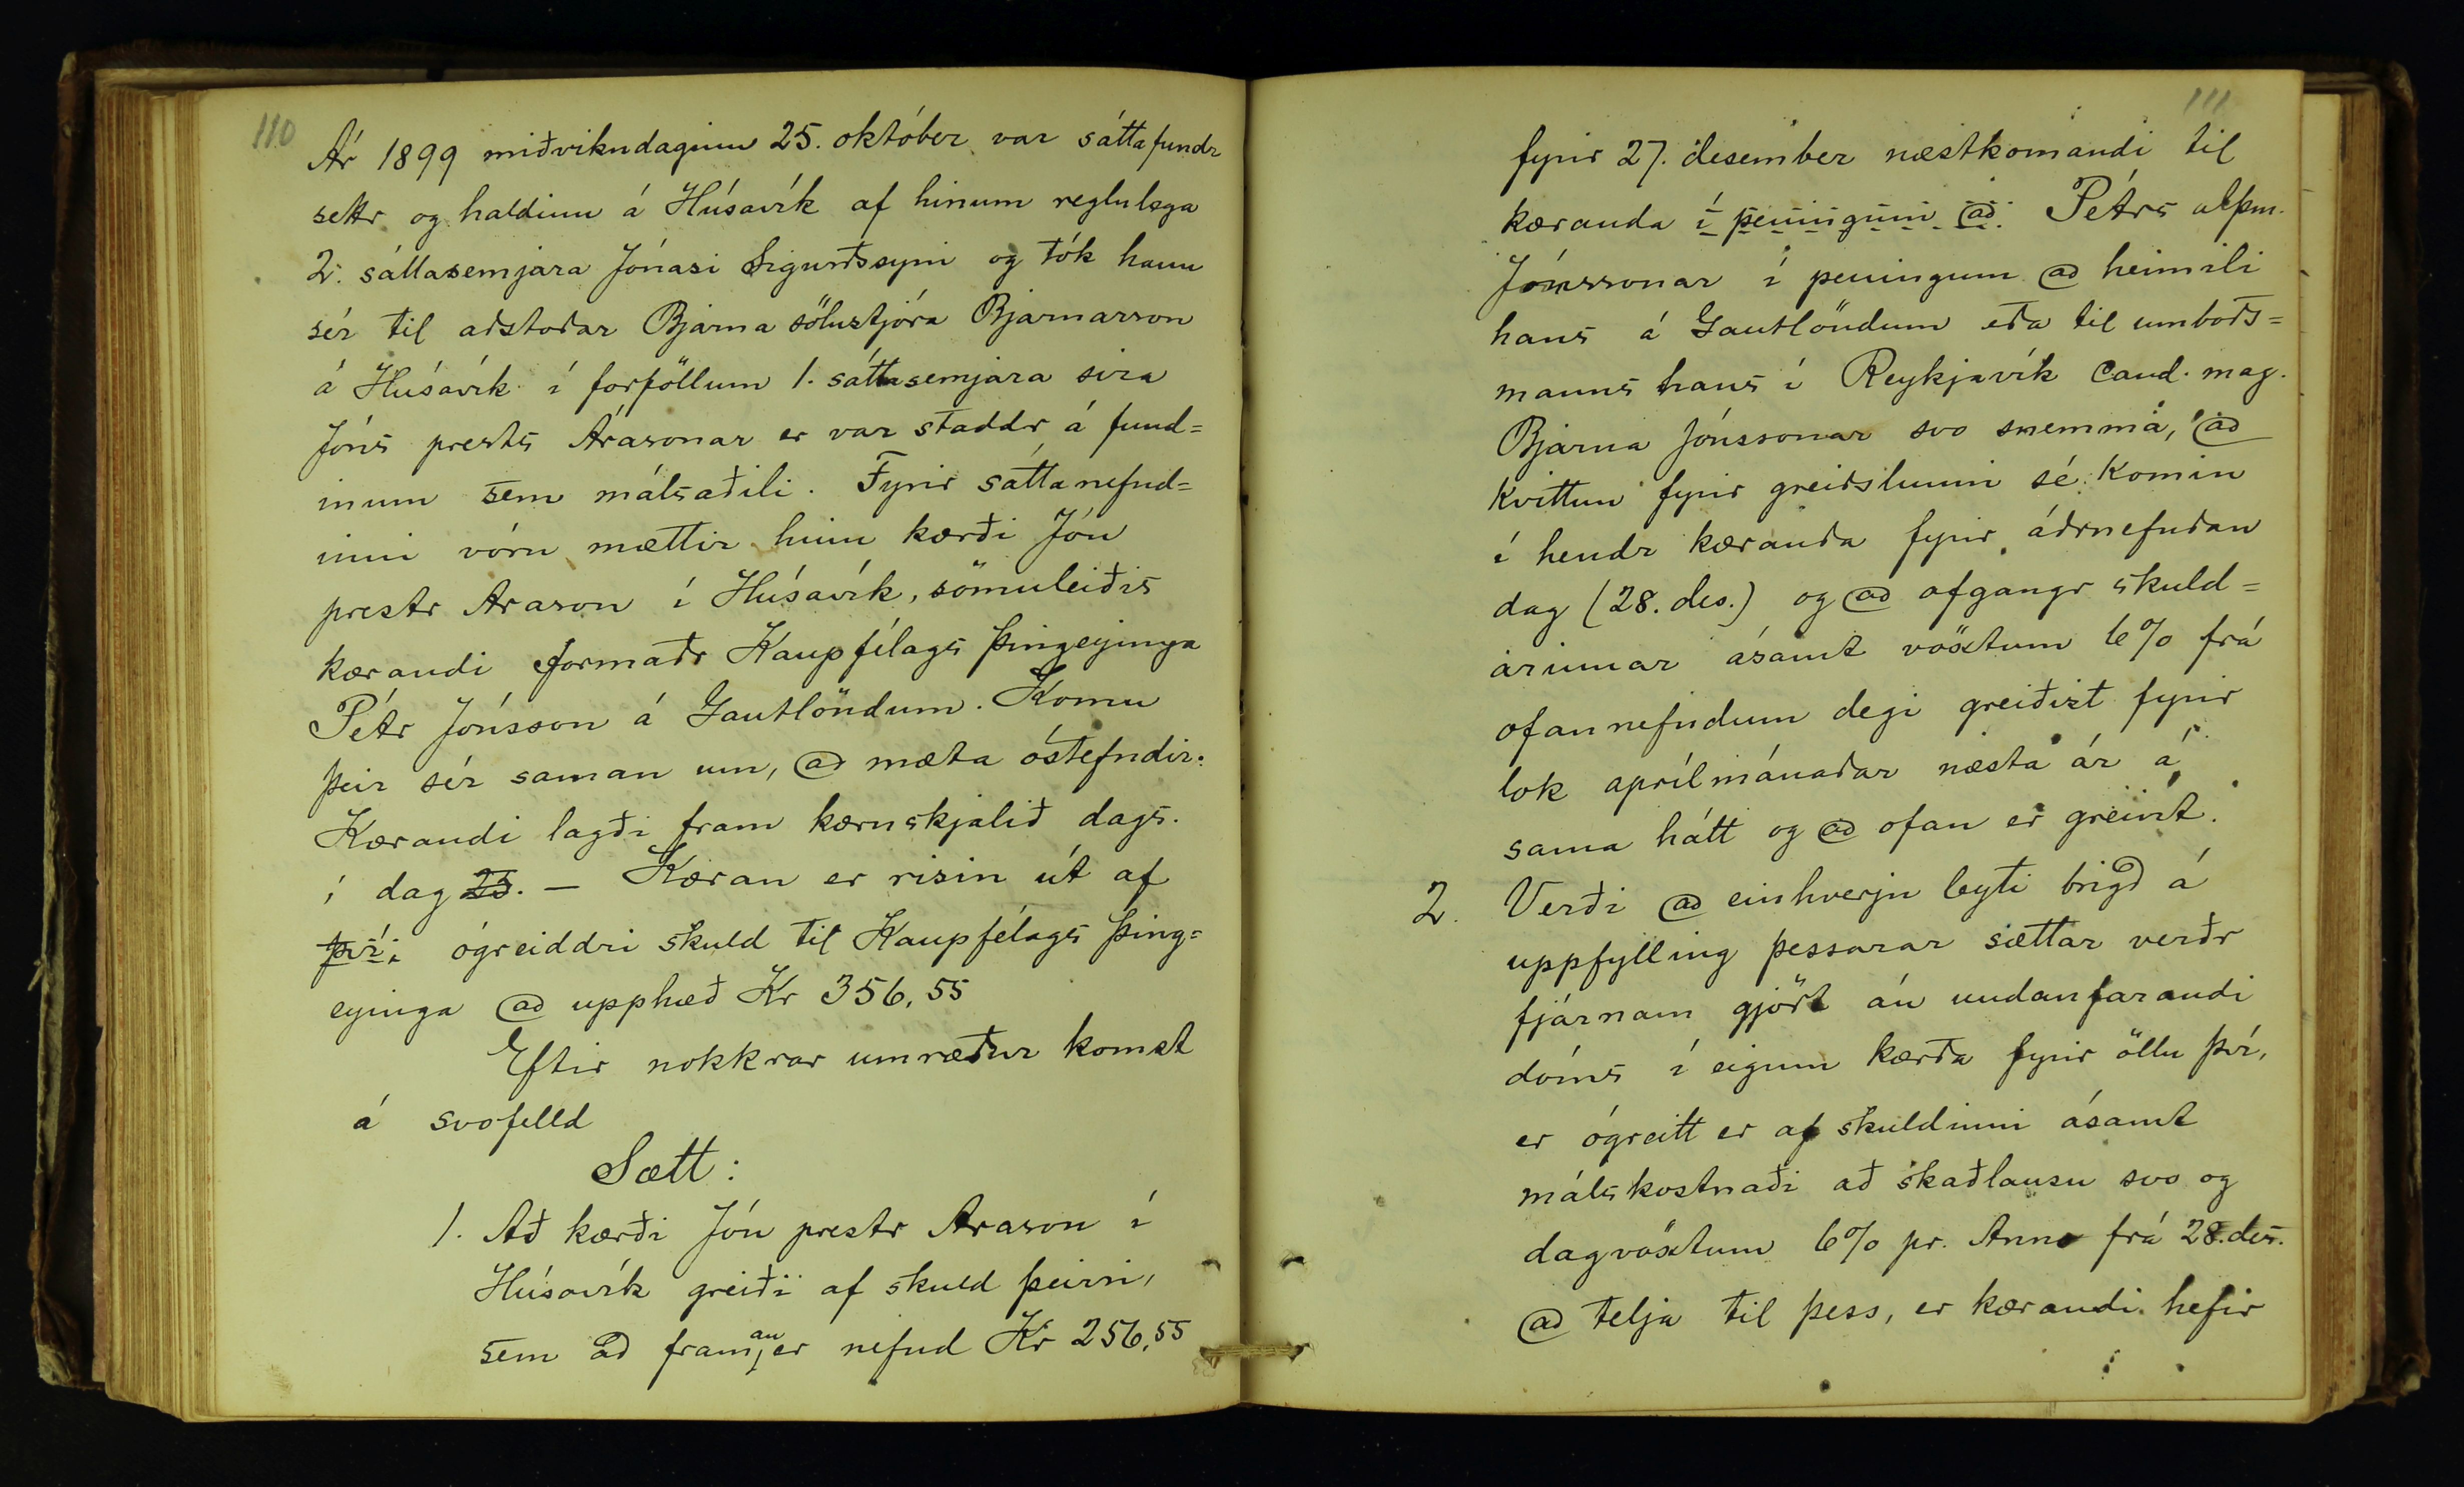 110
Ár 1899 miðvikudaginn 25. október var sáttafundr
settr og haldinn á Húsavík af hinum reglulega
2. sáttasemjara Jónasi Sigurðssyni og tók hann
sér til aðstoðar Bjarna sölustjóra Bjarnarson
á Húsavík í forföllum 1. sáttasemjara síra
Jóns prests Arasonar er var staddr á fund=
inum sem málsaðili. Fyrir sáttanefnd=
inni vóru mættir hinn kærði Jón
prestr Arason í Húsavík, sömuleiðis
kærandi formaðr Kaupfélags Þingeyinga
Pétr Jónsson á Gautlöndum. Komu
þeir sér saman um, að mæta óstefndir.
Kærandi lagði fram kæruskjalið dags.
í dag 25. — Kæran er risin út af
því, ógreiddri skuld til Kaupfélags Þing=
eyinga að upphæð Kr 356,55
Eftir nokkrar umræður komst
á svofelld
Sætt:
1. Að kærði Jón prestr Arason í
Húsavík greiði af skuld þeirri,
sem að framan er nefnd Kr 256,55
111
fyrir 27. desember næstkomandi til
kæranda í peningum að Pétrs alþm.
Jónssonar í peningum að heimili
hans á Gautlöndum eða til umboðs=
manns hans í Reykjavík Cand. mag.
Bjarna Jónssonar svo snemma, að
kvittun fyrir greiðslunni sé komin
í hendr kæranda fyrir áðrnefndan
dag (28. des.) og að afgangr skuld=
arinnar ásamt vöxtum 6% frá
ofannefndum degi greiðist fyrir
lok aprílmánaðar næsta ár á
sama hátt og að ofan er greint.
2. Verði að einhverju leyti brigð á
uppfylling þessarar sættar verðr
fjárnam gjört án undanfarandi
dóms í eigum kærða fyrir öllu því,
er ógreitt er af skuldinni ásamt
málskostnaði að skaðlausu svo og
dagvöxtum 6% pr. Anno frá 28. des.
að telja til þess, er kærandi hefir